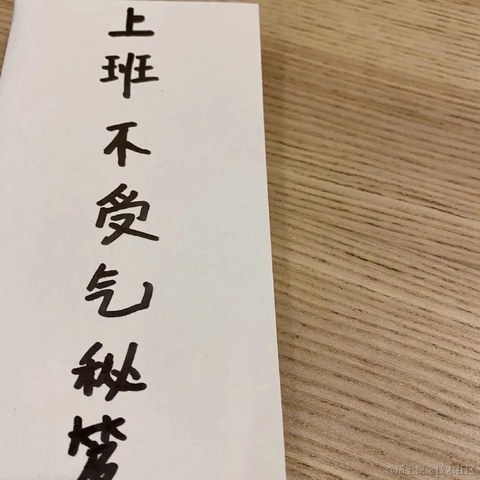 上班不受气秘笈
@稀土掘金技术社区